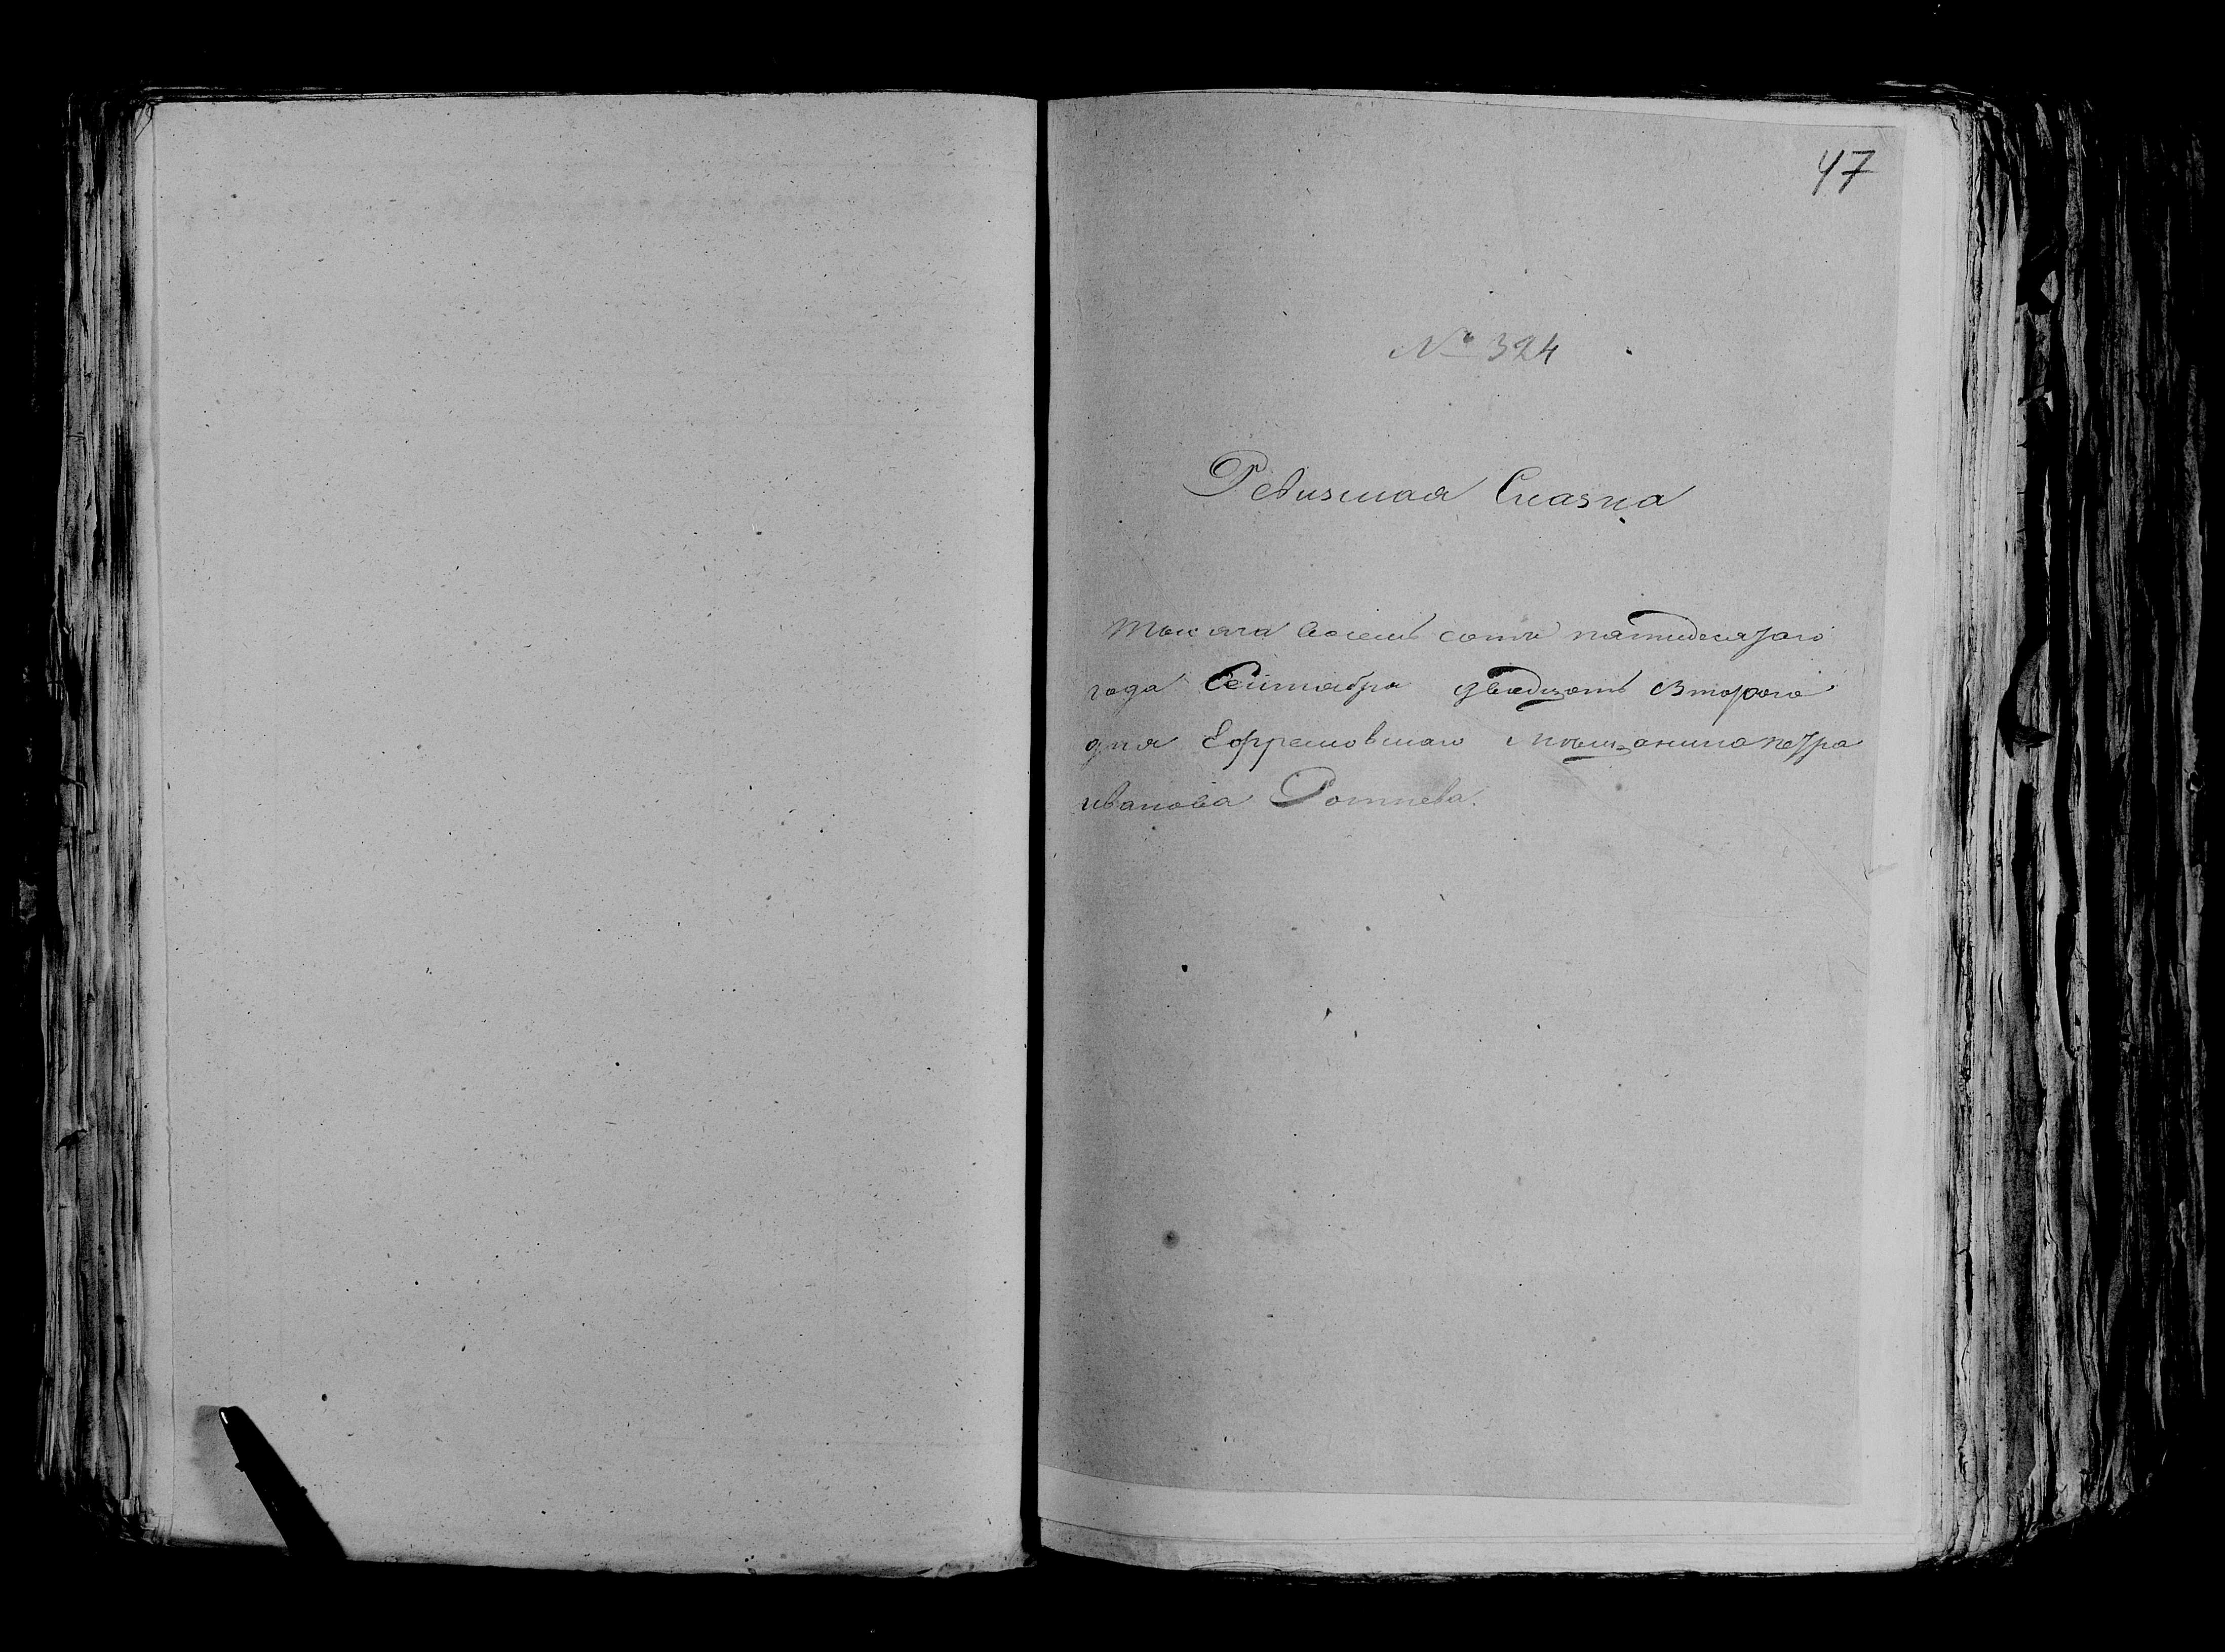 47
№ 324
Ревизская Сказка
Тысяча восемь сотъ пятидесятого
года Сентября двадцать второго
дня Ефремовскаго мѣщанина петра
иванова